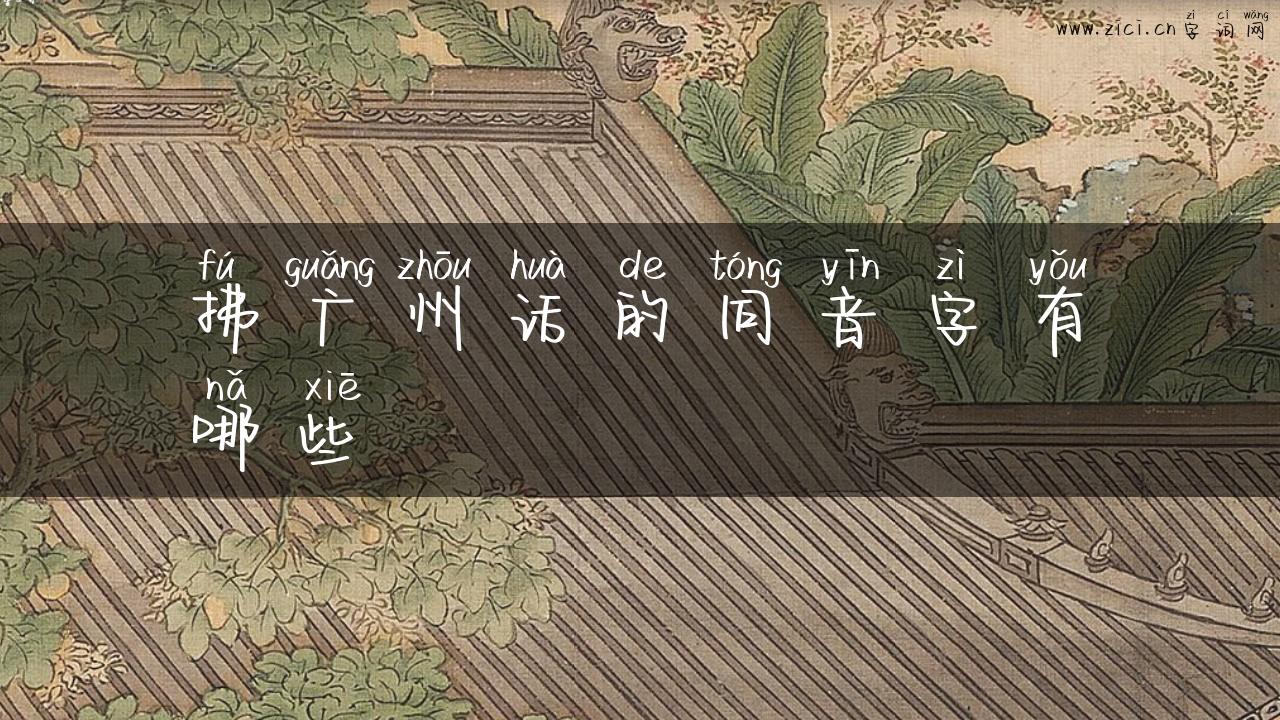 zì cí wǎng
www.zici.cn 字词网
fú guǎng zhōu huà de tóng yīn zì yǒu
拂广州话的同音字有
nǎ xiē
哪些